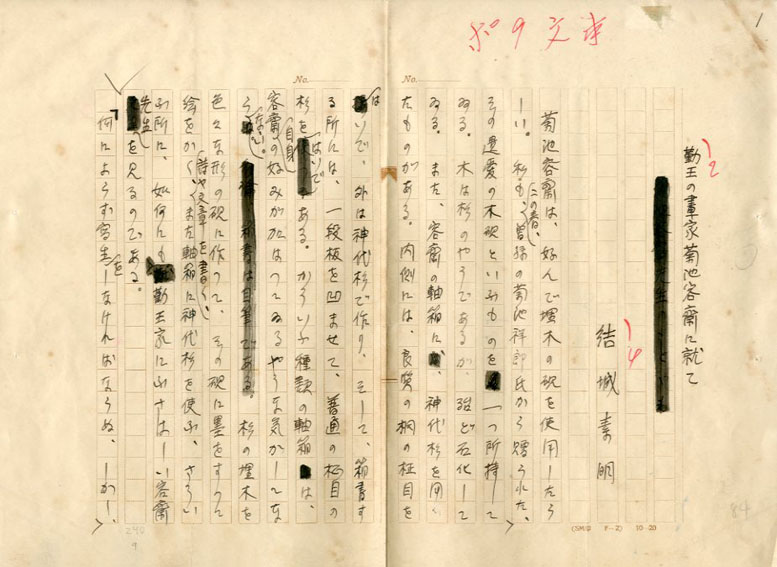 1
ポの文庫
12
勤王の畫家菊池容齋に就て
14
結城素明
菊池容齋は、好んで埋木の硯を使用したら
しい。私も、この春、曽孫の菊池祥郎氏から贈られた、
その遺愛の木硯といふものを一つ所持して
ゐる。木は杉のやうであるが、殆ど石化して
ゐる。また、容齋の軸箱に、神代杉を用ひ
たものがある。内側には、良質の桐の柾目を
はいで、外は神代杉で作り、そして、箱書す
る所には、一段板を凹ませて、普通の柾目の
杉をはいである。かういふ種類の軸箱は、
容齋自身の好みが加はつてゐるやうな気がしてな
らない。杉の埋木を
色々な形の硯に作つて、その硯に墨をすつて
絵をかく、詩や文章を書く、また軸箱に神代杉を使ふ、さうい
ふ所に、如何にも勤王家にふさはしい容齋
先生を見るのである。
「何によらず写生をしなければならぬ、しかし、
No.
No.
(SM印 F-2) 10-20
240
9
84